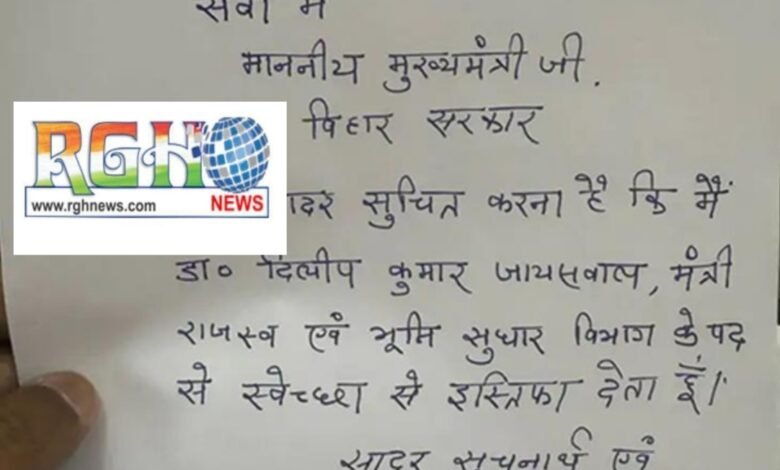 सेवा में
माननीय मुख्यमंत्री जी.
बिहार सरकार
RGH
www.rghnews.com NEWS
सादर सुचित करना है कि मैं
डा० दिलीप कुमार जायसवाल, मंत्री
राजस्व एवं भूमि सुधार विभाग के पद
से स्वेच्छा से इस्तिफा देता हूँ।
सादर सूचनार्थ एवं